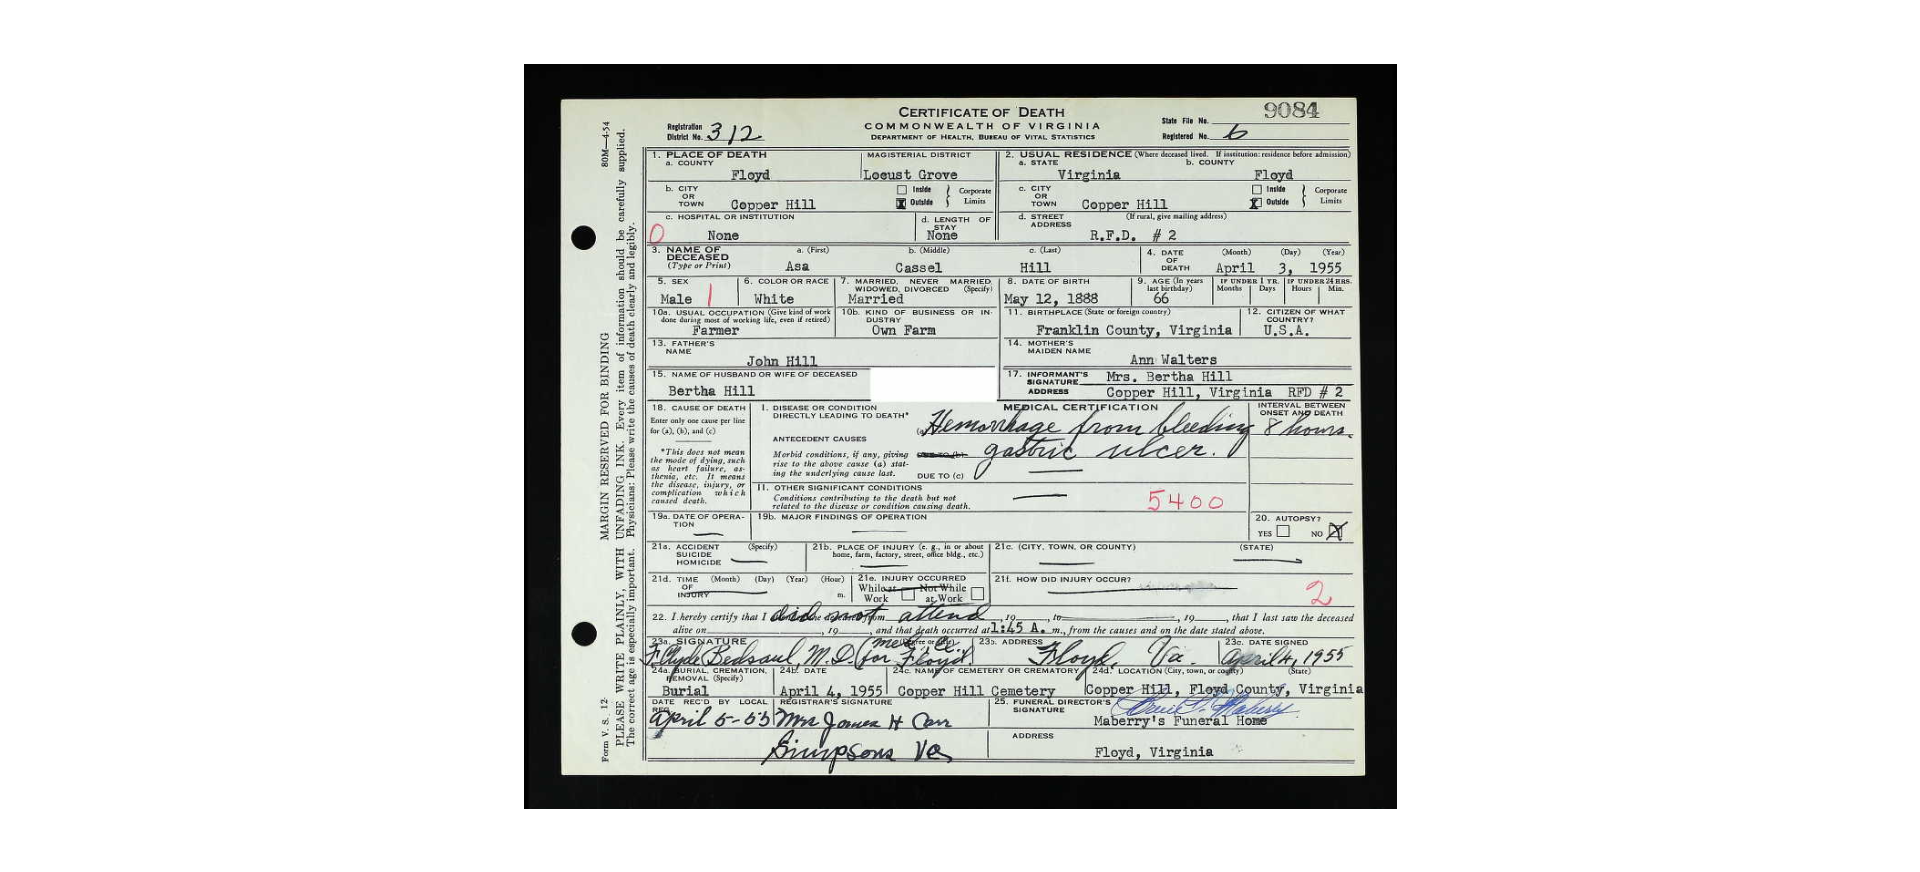 CERTIFICATE OF DEATH
9084
Registration District No. 312
COMMONWEALTH OF VIRGINIA
State File No.
DEPARTMENT OF HEALTH, BUREAU OF VITAL STATISTICS
Registered No. 6
80M—4-54
MARGIN RESERVED FOR BINDING
Form V. S. 12
PLEASE WRITE PLAINLY, WITH UNFADING INK. Every item of information should be carefully supplied.
The correct age is especially important. Physicians: Please write the causes of death clearly and legibly.
1. PLACE OF DEATH
a. COUNTY
Floyd
MAGISTERIAL DISTRICT
Locust Grove
2. USUAL RESIDENCE (Where deceased lived. If institution: residence before admission)
a. STATE
Virginia
b. COUNTY
Floyd
b. CITY OR TOWN Copper Hill
Inside
Outside
Corporate Limits
c. CITY OR TOWN Copper Hill
Inside
Outside
Corporate Limits
c. HOSPITAL OR INSTITUTION
0
None
d. LENGTH OF STAY
None
d. STREET ADDRESS (If rural, give mailing address)
R.F.D. # 2
3. NAME OF DECEASED (Type or Print)
a. (First)
Asa
b. (Middle)
Cassel
c. (Last)
Hill
4. DATE OF DEATH
(Month) (Day) (Year)
April 3, 1955
5. SEX
Male 1
6. COLOR OR RACE
White
7. MARRIED, NEVER MARRIED, WIDOWED, DIVORCED (Specify)
Married
8. DATE OF BIRTH
May 12, 1888
9. AGE (In years last birthday)
66
IF UNDER 1 YR.
Months Days
IF UNDER 24 HRS.
Hours Min.
10a. USUAL OCCUPATION (Give kind of work done during most of working life, even if retired)
Farmer
10b. KIND OF BUSINESS OR INDUSTRY
Own Farm
11. BIRTHPLACE (State or foreign country)
Franklin County, Virginia
12. CITIZEN OF WHAT COUNTRY?
U.S.A.
13. FATHER'S NAME
John Hill
14. MOTHER'S MAIDEN NAME
Ann Walters
15. NAME OF HUSBAND OR WIFE OF DECEASED
Bertha Hill
17. INFORMANT'S SIGNATURE Mrs. Bertha Hill
ADDRESS Copper Hill, Virginia RFD # 2
18. CAUSE OF DEATH
Enter only one cause per line for (a), (b), and (c)
*This does not mean the mode of dying, such as heart failure, asthenia, etc. It means the disease, injury, or complication which caused death.
MEDICAL CERTIFICATION
INTERVAL BETWEEN ONSET AND DEATH
I. DISEASE OR CONDITION DIRECTLY LEADING TO DEATH*
(a) Hemorrhage from bleeding
8 hours.
ANTECEDENT CAUSES
Morbid conditions, if any, giving rise to the above cause (a) stating the underlying cause last.
DUE TO (b) gastric ulcer.
DUE TO (c)
II. OTHER SIGNIFICANT CONDITIONS
Conditions contributing to the death but not related to the disease or condition causing death.
5400
19a. DATE OF OPERATION
19b. MAJOR FINDINGS OF OPERATION
20. AUTOPSY?
YES NO
21a. ACCIDENT SUICIDE HOMICIDE (Specify)
21b. PLACE OF INJURY (e. g., in or about home, farm, factory, street, office bldg., etc.)
21c. (CITY, TOWN, OR COUNTY) (STATE)
21d. TIME OF INJURY (Month) (Day) (Year) (Hour) m.
21e. INJURY OCCURRED
While at Work Not While at Work
21f. HOW DID INJURY OCCUR?
2
22. I hereby certify that I did not attend , 19 , to , 19 , that I last saw the deceased
alive on , 19 , and that death occurred at 1:45 A. m., from the causes and on the date stated above.
23a. SIGNATURE
F. Clyde Bedsaul, M.D. (med. ex. for Floyd)
23b. ADDRESS
Floyd, Va.
23c. DATE SIGNED
April 4, 1955
24a. BURIAL, CREMATION, REMOVAL (Specify)
Burial
24b. DATE
April 4, 1955
24c. NAME OF CEMETERY OR CREMATORY
Copper Hill Cemetery
24d. LOCATION (City, town, or county) (State)
Copper Hill, Floyd County, Virginia
DATE REC'D BY LOCAL REG.
April 5-55
REGISTRAR'S SIGNATURE
Mrs James H Carr
Simpsons Va
25. FUNERAL DIRECTOR'S SIGNATURE
Maberry
Maberry's Funeral Home
ADDRESS
Floyd, Virginia